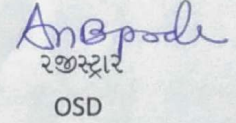 રજીસ્ટ્રાર
OSD